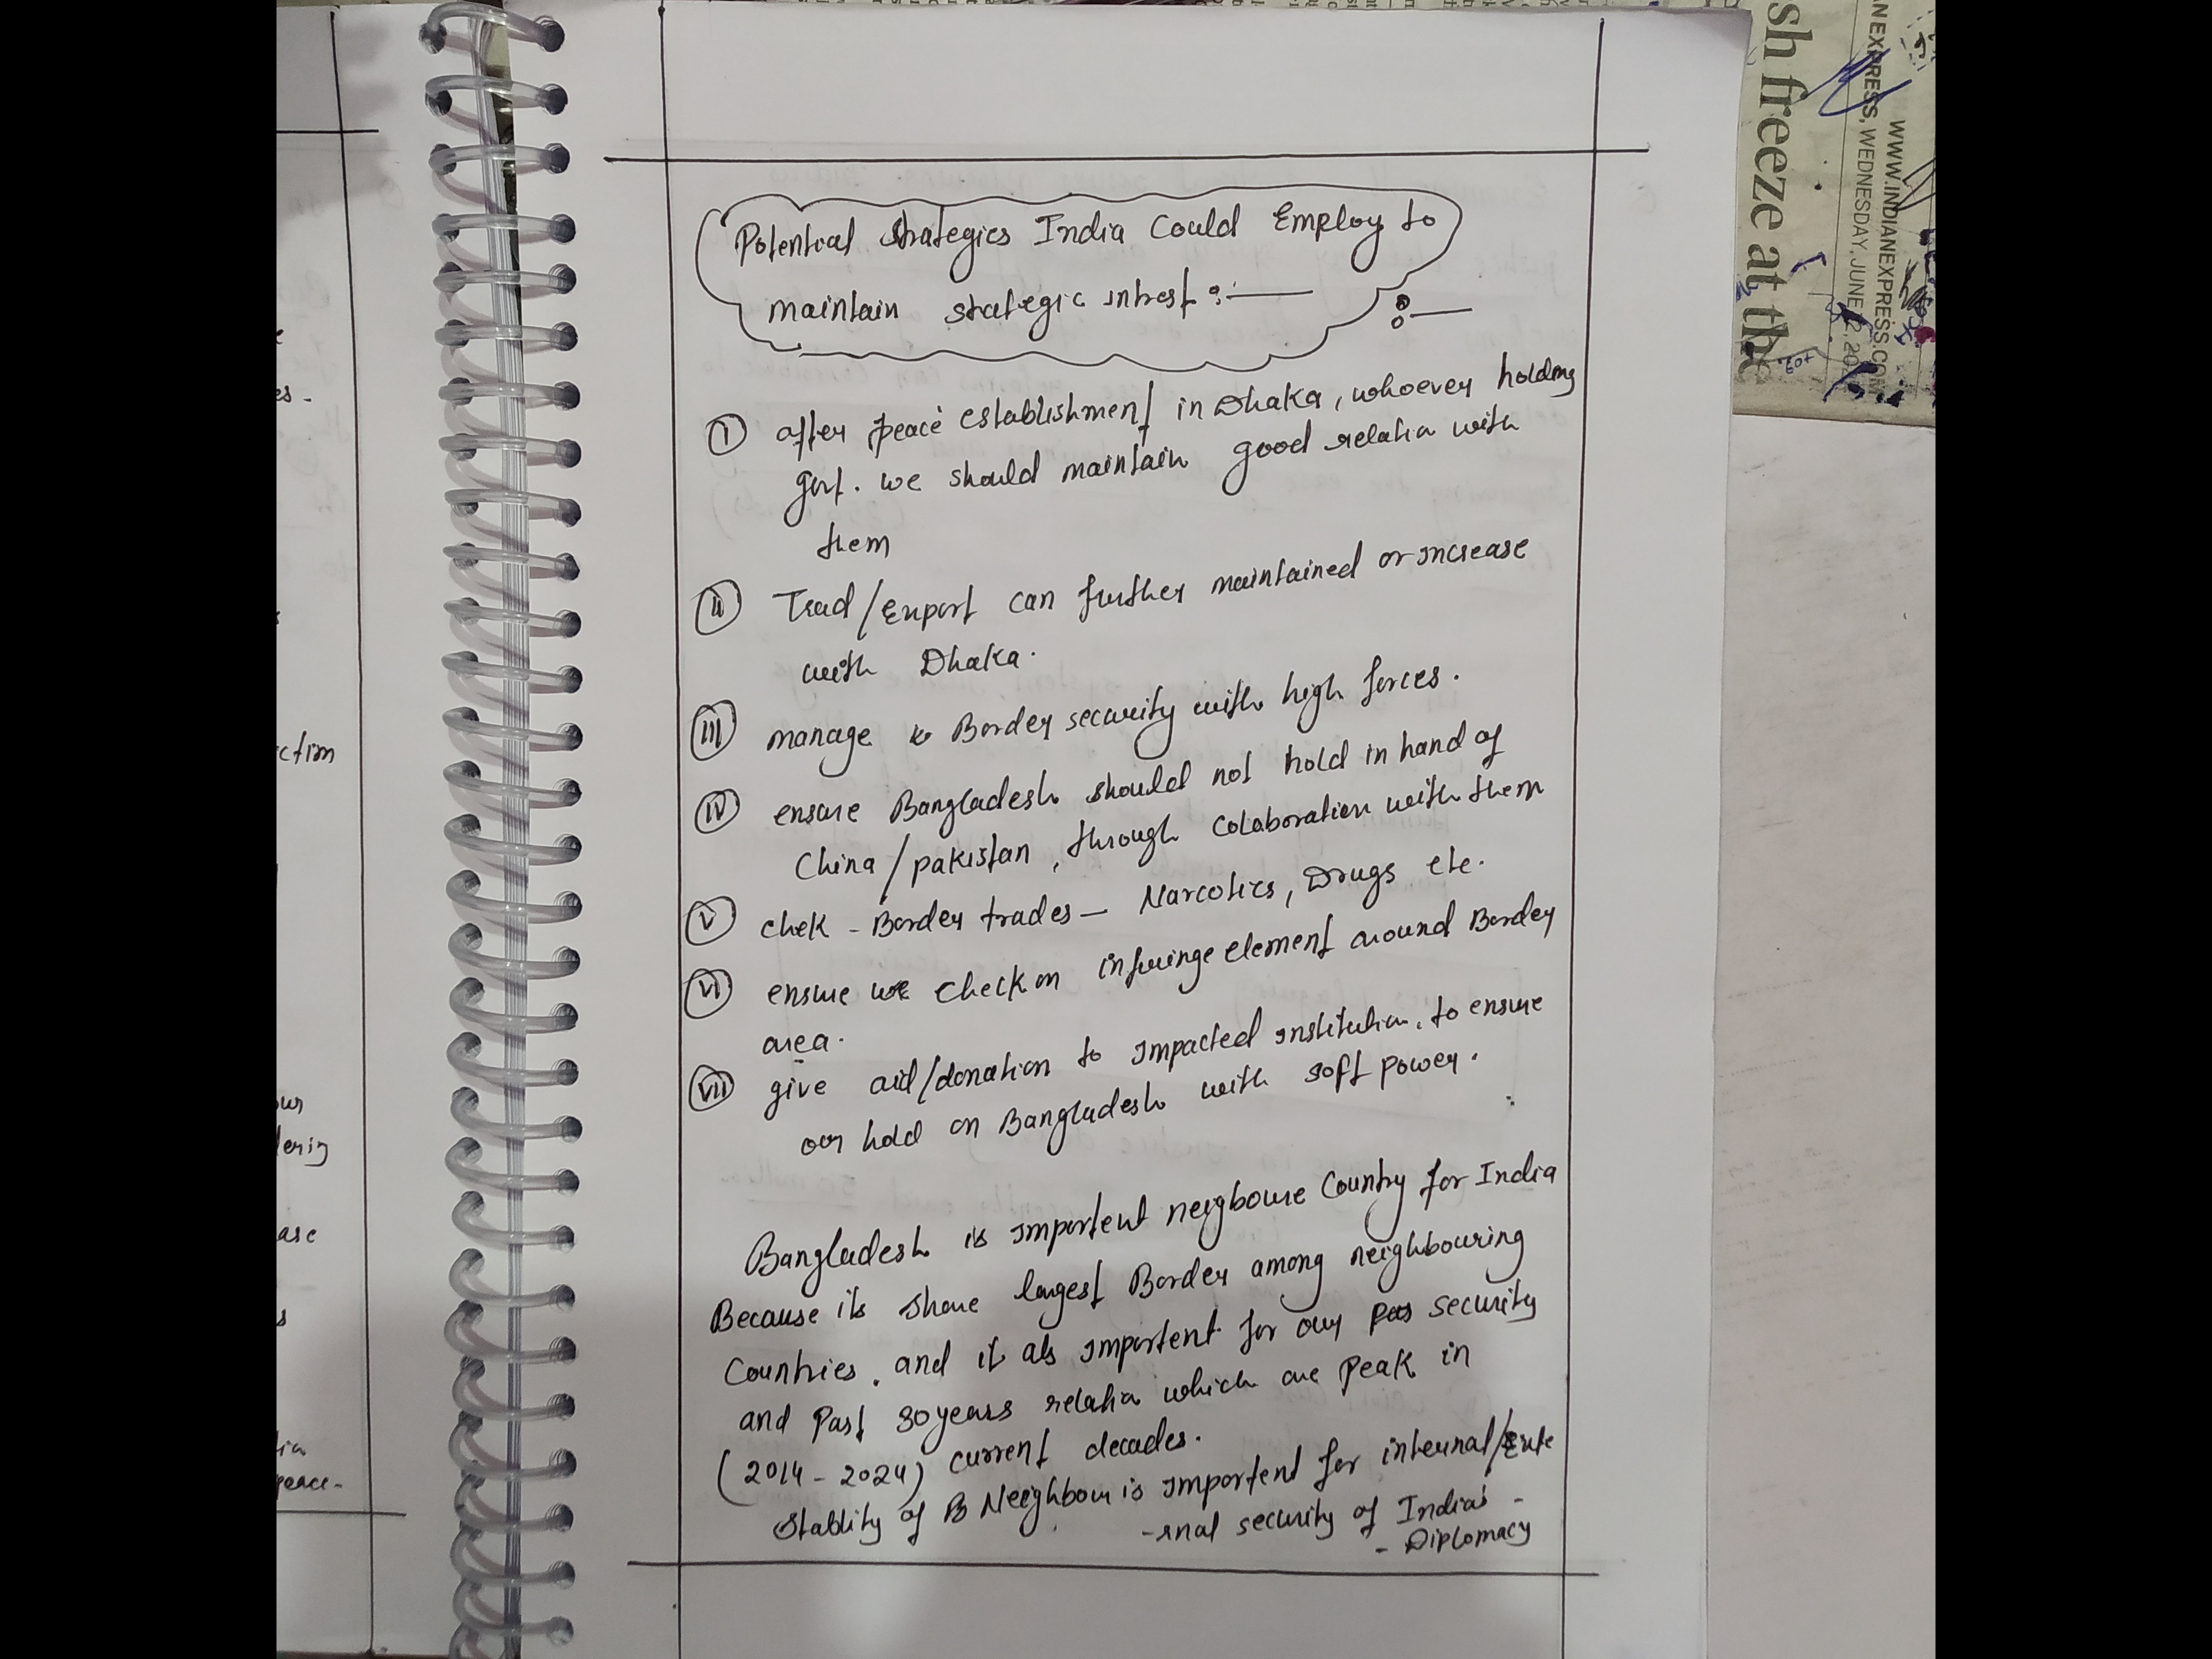 Potential strategies India Could Employ to
maintain strategic intrest :-
:-
(I) after peace establishment in Dhaka, whoever holding
govt. we should maintain good relatin with
them
(II) Trad/Export can further maintained or increase
with Dhaka.
(III) manage Border security with high forces.
(IV) ensure Bangladesh should not hold in hand of
China/pakistan, through colaboration with them
(V) chek - Border trades - Narcotics, Drugs etc.
(VI) ensure we check on infringe element around Border
area.
(VII) give aid/donation to impacted institution, to ensure
our hold on Bangladesh with soft power.
Bangladesh is importent neigboure Country for India
Because its share largest Border among neighbouring
Countries. and it als importent for our security
and Past 30 years relatin which are Peak in
(2014 - 2024) current decades.
Stablity of Neighbour is importent for internal/Exte
-rnal security of India's -
- Diplomacy
sh freeze at the
WWW.INDIANEXPRESS.COM
N EXPRESS, WEDNESDAY, JUNE 12, 202
ction
lering
ase
peace-